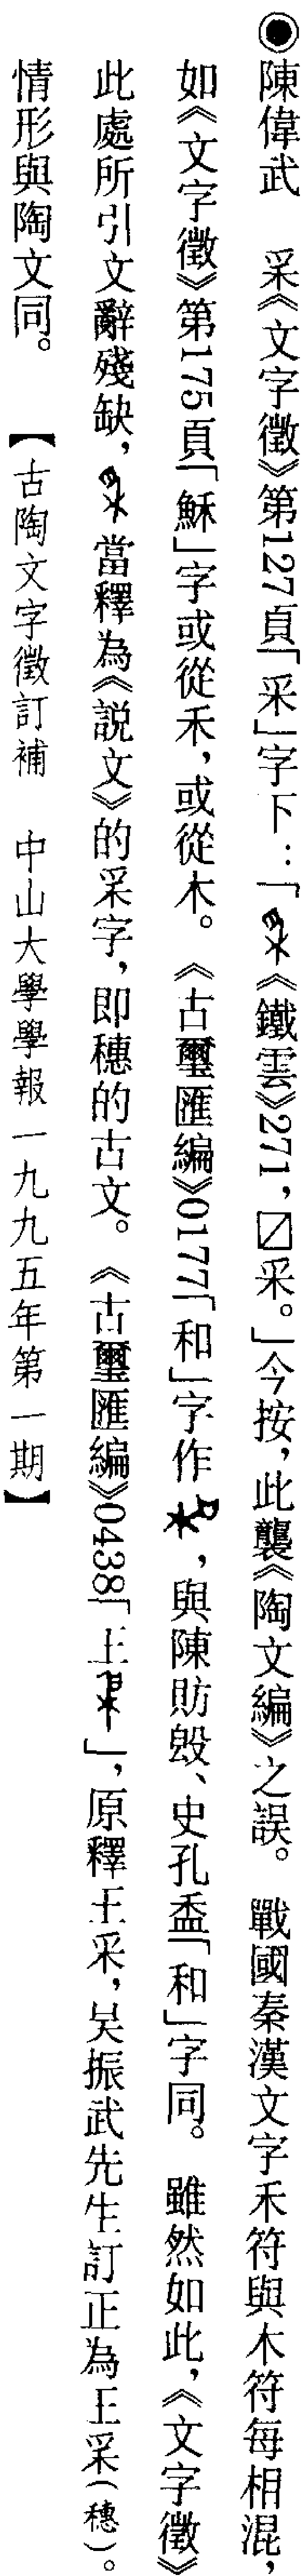 ◉陳偉武　采《文字徵》第127頁「采」字下：「《鐵雲》271，☐采。」今按，此襲《陶文編》之誤。戰國秦漢文字禾符與木符每相混，
如《文字徵》第175頁「穌」字或從禾，或從木。《古璽匯編》0177「和」字作，與陳肪𣪘、史孔盉「和」字同。雖然如此，《文字徵》
此處所引文辭殘缺，當釋為《説文》的𥝩字，即穗的古文。《古璽匯編》0438「王」，原釋王采，吴振武先生訂正為王𥝩(穗)。
情形與陶文同。【古陶文字徵訂補　中山大學學報一九九五年第一期】